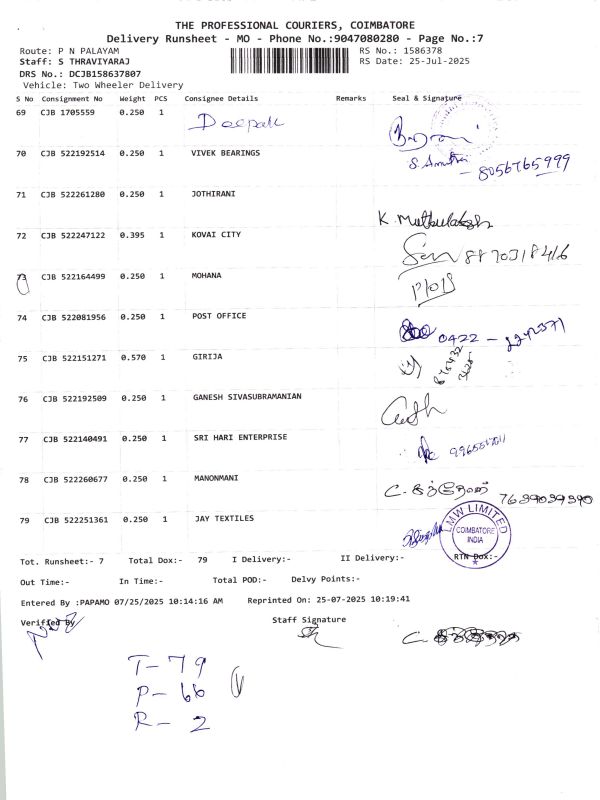 THE PROFESSIONAL COURIERS, COIMBATORE
Delivery Runsheet - MO - Phone No.:9047080280 - Page No.:7
Route: P N PALAYAM RS No.: 1586378
Staff: S THRAVIYARAJ RS Date: 25-Jul-2025
DRS No.: DCJB158637807
Vehicle: Two Wheeler Delivery
S No Consignment No Weight PCS Consignee Details Remarks Seal & Signature
69 CJB 1705559 0.250 1 Deepak
70 CJB 522192514 0.250 1 VIVEK BEARINGS
- 8056765999
71 CJB 522261280 0.250 1 JOTHIRANI
K. Muthulaksh
72 CJB 522247122 0.395 1 KOVAI CITY
8870318416
73 CJB 522164499 0.250 1 MOHANA
74 CJB 522081956 0.250 1 POST OFFICE
0422 -
75 CJB 522151271 0.570 1 GIRIJA
76 CJB 522192509 0.250 1 GANESH SIVASUBRAMANIAN
77 CJB 522140491 0.250 1 SRI HARI ENTERPRISE
78 CJB 522260677 0.250 1 MANONMANI
7639039390
79 CJB 522251361 0.250 1 JAY TEXTILES
LMW LIMITED
COIMBATORE
INDIA
Tot. Runsheet:- 7 Total Dox:- 79 I Delivery:- II Delivery:- RTN Dox:-
Out Time:- In Time:- Total POD:- Delvy Points:-
Entered By :PAPAMO 07/25/2025 10:14:16 AM Reprinted On: 25-07-2025 10:19:41
Verified By Staff Signature
T- 79
P- 66
R- 2